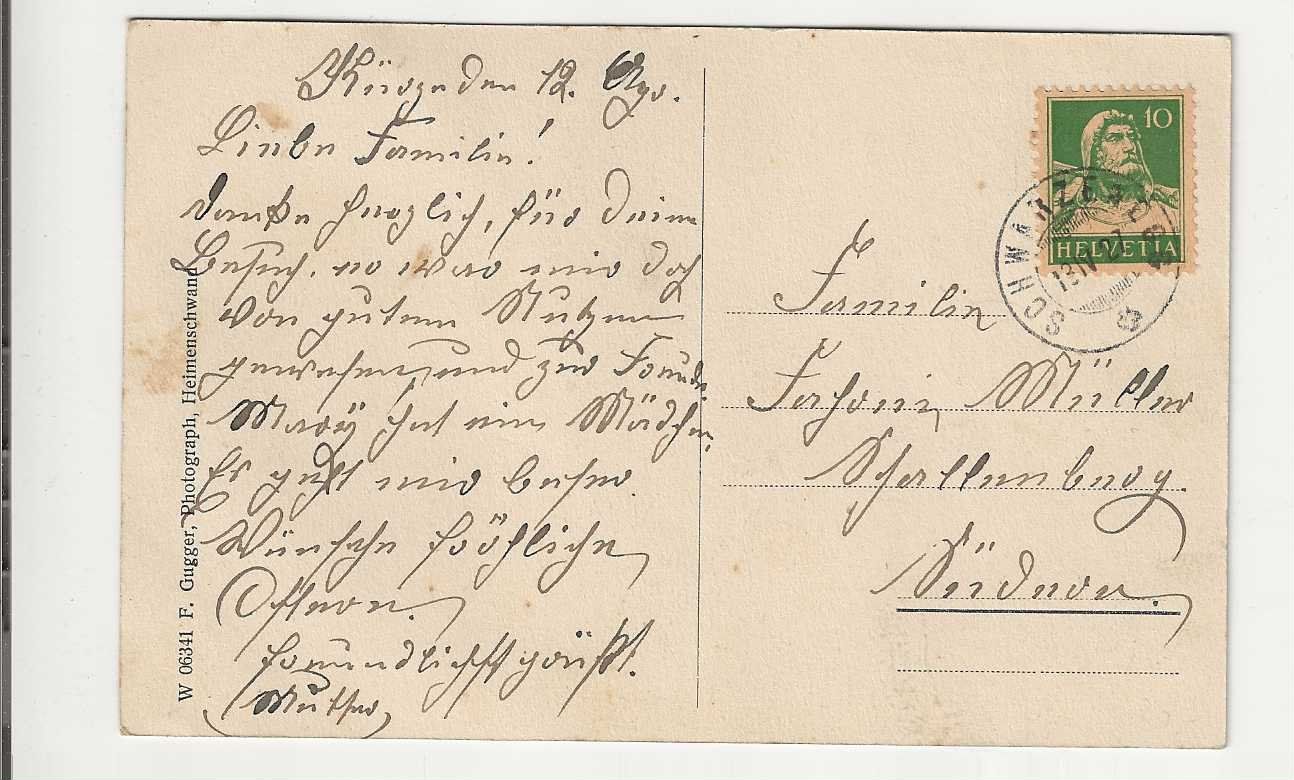 den 12. Apr.
Liebe Familie!
Danke herzlich, für deinen
Besuch. es war mir doch
von gutem Nutzen
gewesen, und zur Freude.
Mary hat ein Mädchen.
Es geht mir besser.
Wünsche fröhliche
Ostern.
freundlichst grüßt.
Mutter
W 06341 F. Gugger, Photograph, Heimenschwand
10
HELVETIA
13 IV 27
Familie
Müller
Schallenberg.
Süderen.